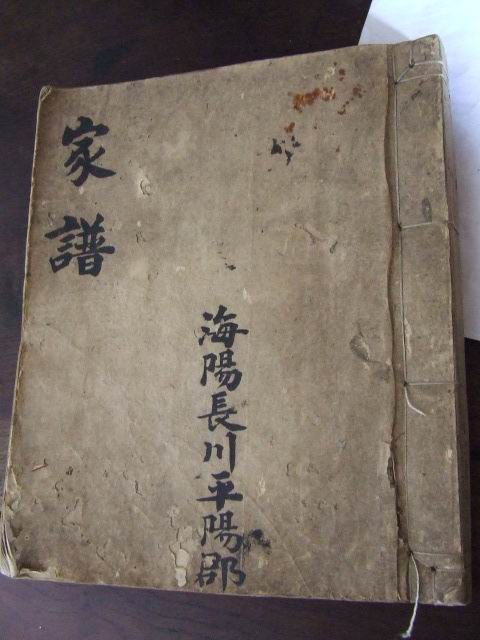 家譜
海陽長川平陽郡